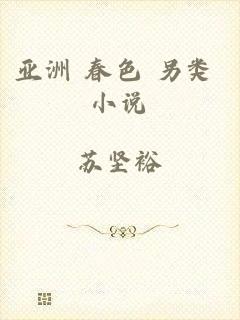 亚洲 春色 另类
小说
苏坚裕